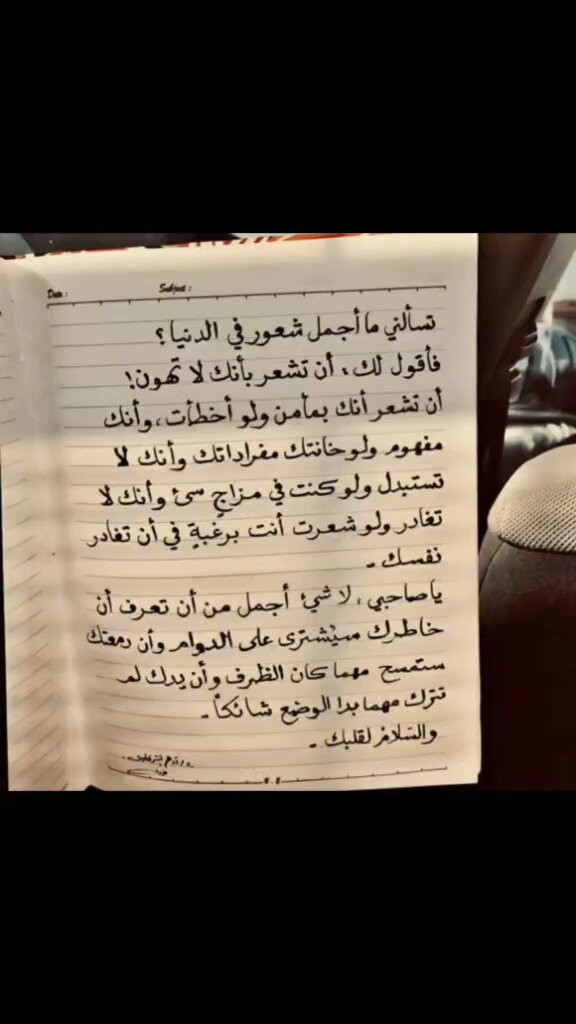 Date :
Subject :
تسألني ما أجمل شعور في الدنيا ؟
فأقول لك : أن تشعر بأنك لا تهون !
أن تشعر أنك بمأمن ولو أخطأت ، وأنك
مفهوم ولو خانتك مفراداتك وأنك لا
تستبدل ولو كنت في مزاجٍ سئ وأنك لا
تغادر ولو شعرت أنت برغبةٍ في أن تغادر
نفسك .
ياصاحبي ، لا شيئ أجمل من أن تعرف أن
خاطرك سيُشترى على الدوام وأن دمعتك
ستمسح مهما كان الظرف وأن يدك لم
تترك مهما بدا الوضع شائكاً .
والسّلامُ لقلبك .